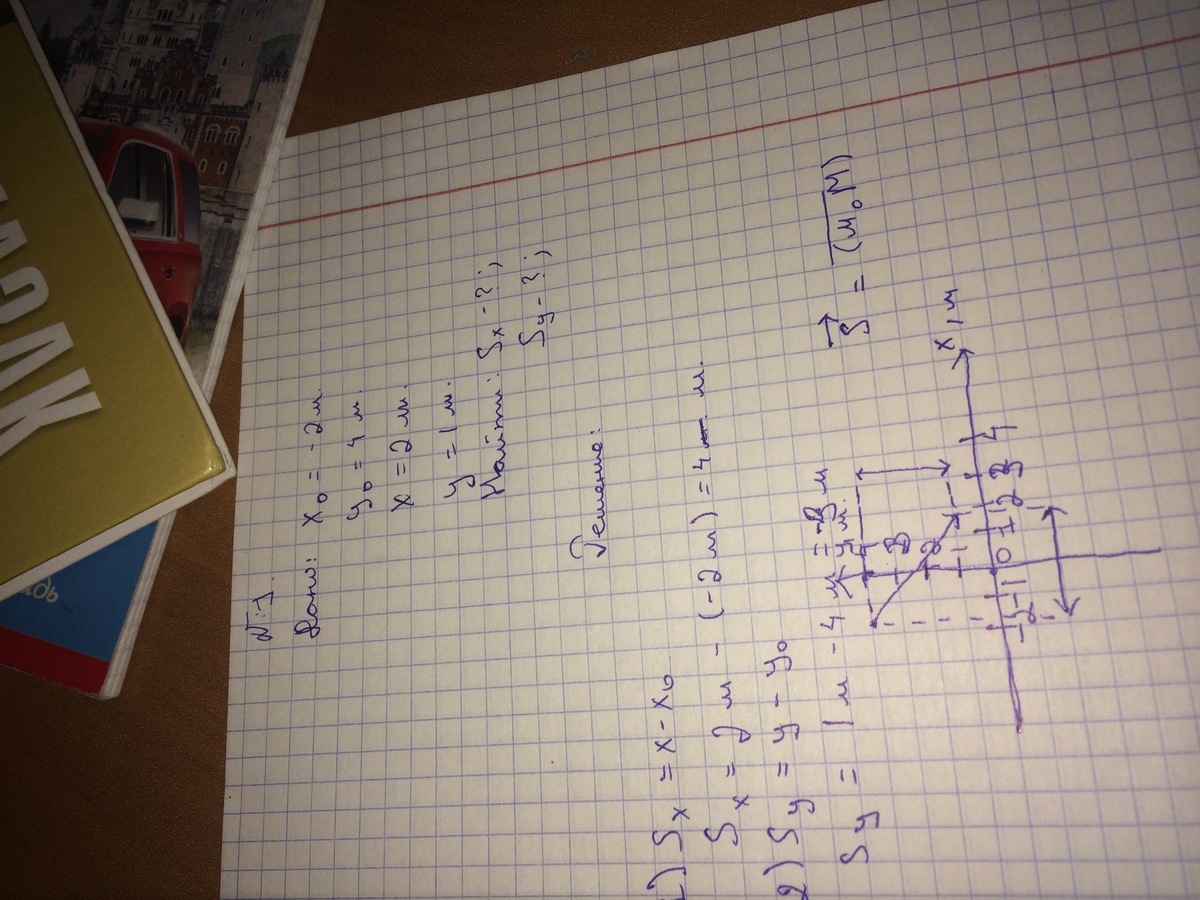 №1.
Дано: x₀ = -2 м.
y₀ = 4 м.
x = 2 м.
y = 1 м.
Найти: Sx - ?;
Sy - ?;
Решение:
1) Sx = x - x₀
Sx = 2 м - (-2 м) = 4 м.
2) Sy = y - y₀
Sy = 1 м - 4 м = -3 м
S = (M₀M)
y, м.
4
3
2
1
-2 -1 0 1 2 3 4
x, м
адь